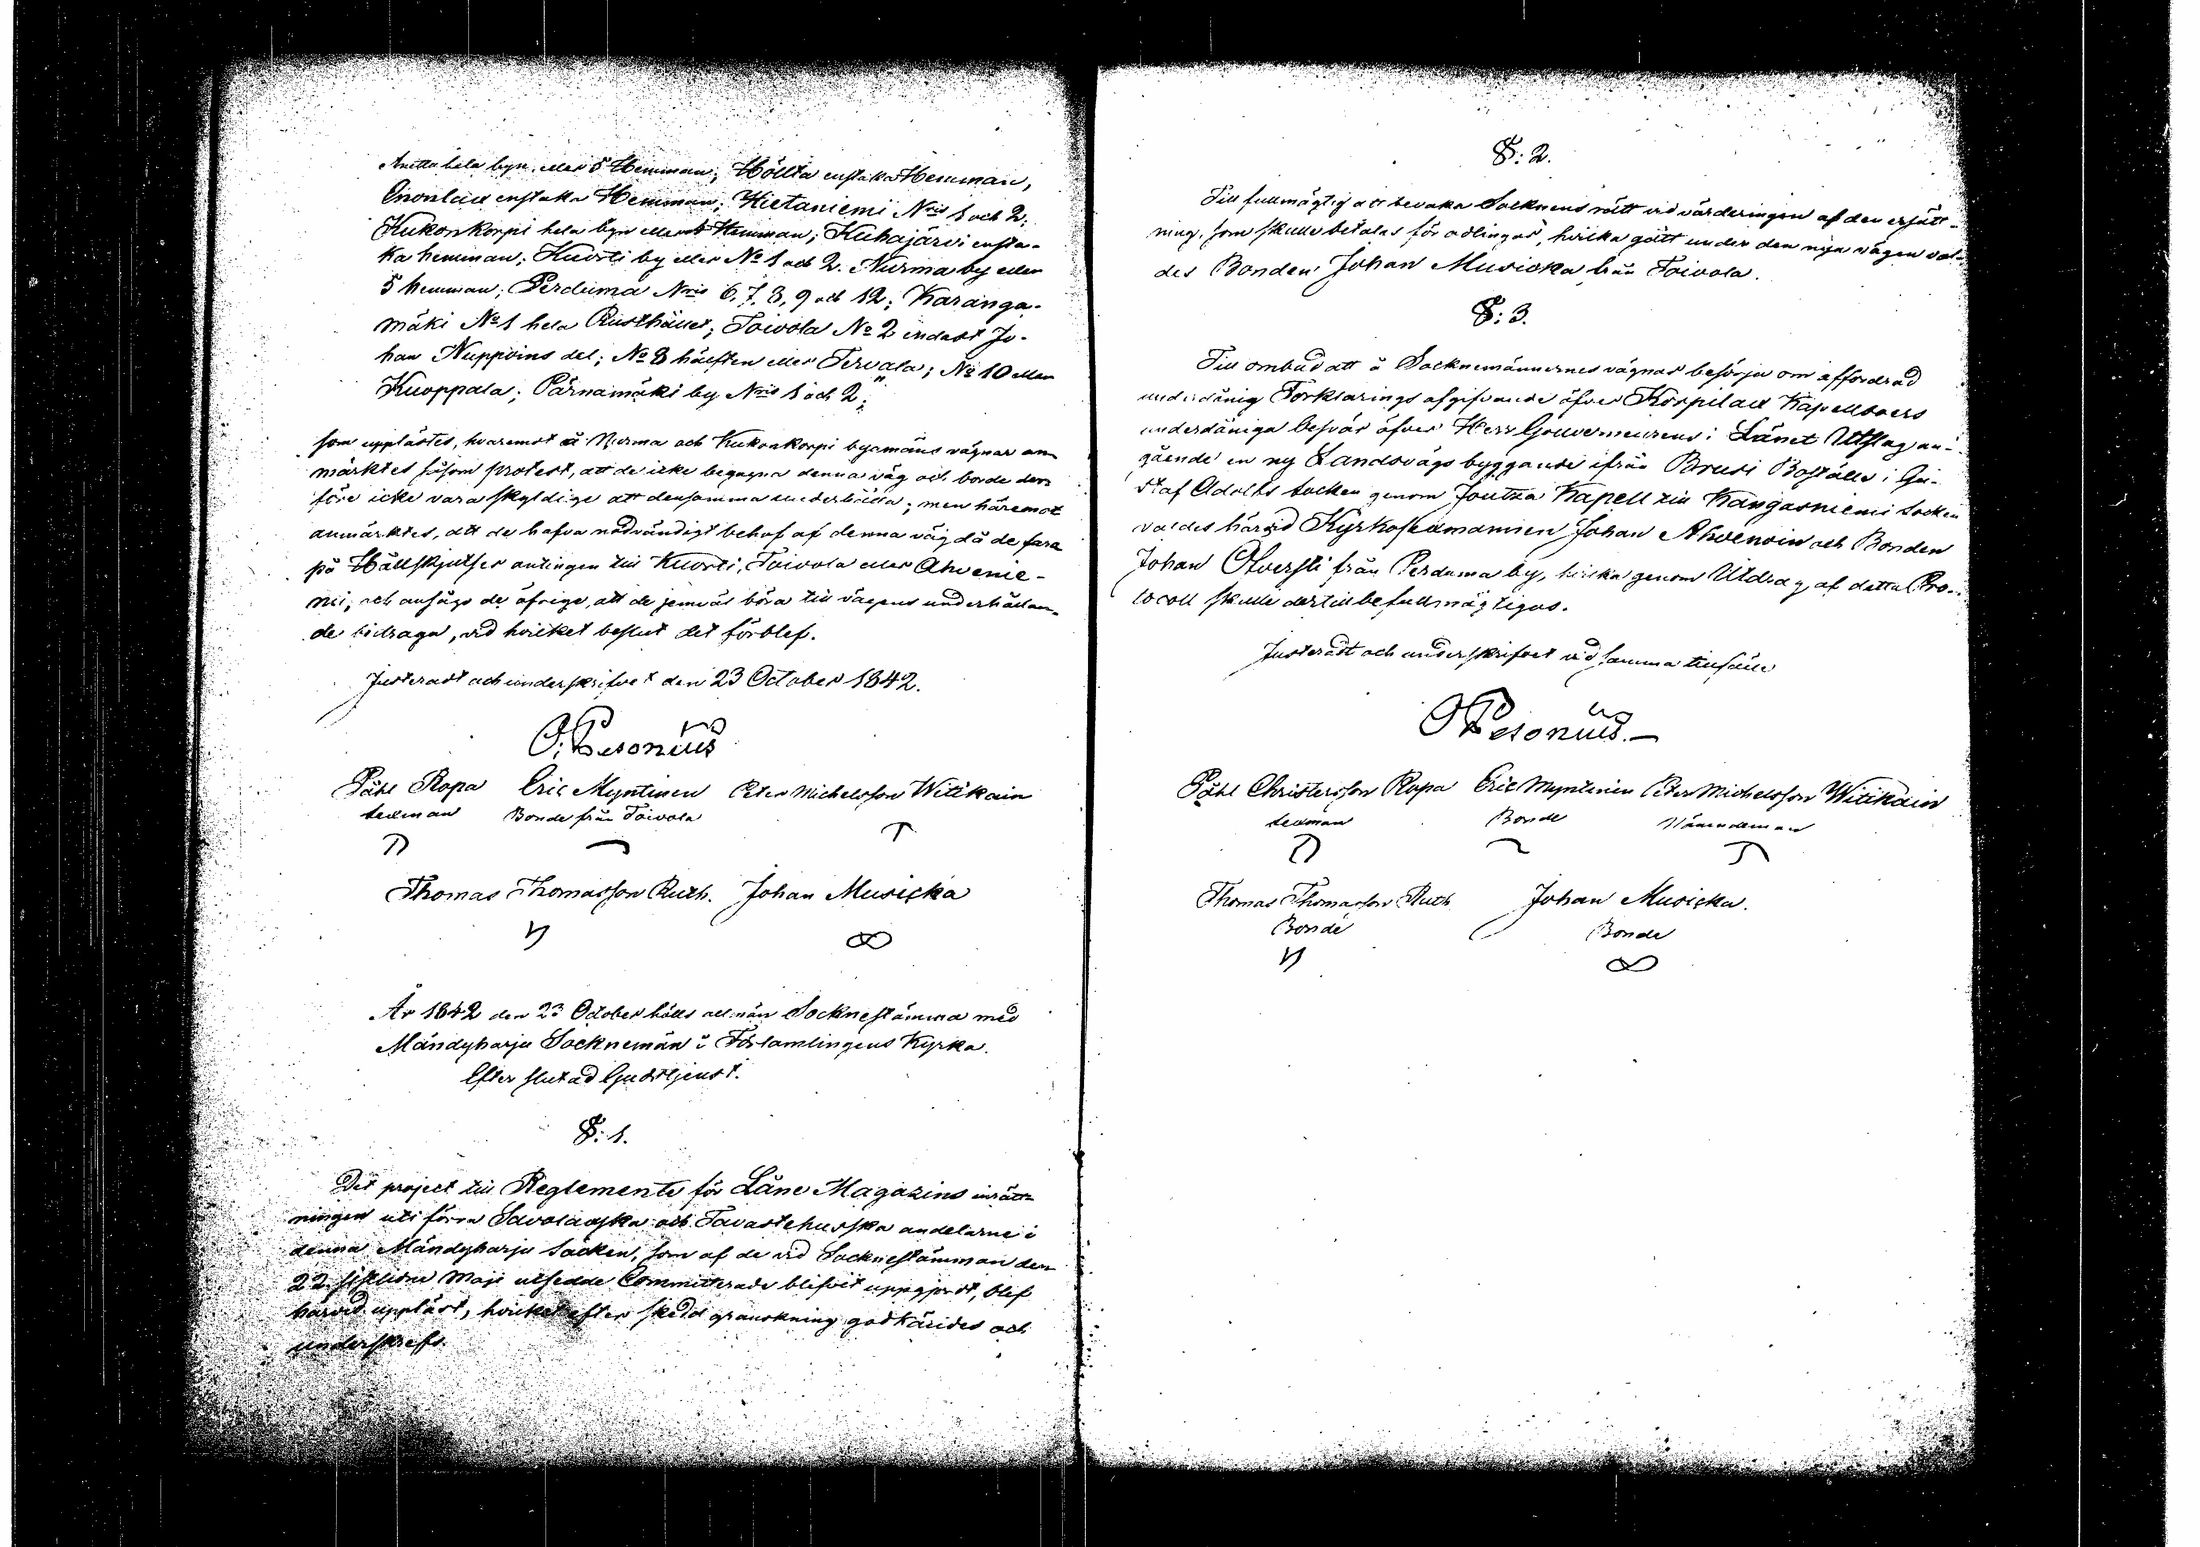 Anetta hela byn eller 5 Hemman; Höltta enstaka Hemman,
Enonlax enstaka Hemman; Hietaniemi Nris 1 och 2;
Kukonkorpi hela byn eller Hemman; Kuhajärvi ensta-
ka hemman; Kuorti by eller No 1 och 2. Nurma by eller
5 hemman; Perduma Nris 6, 7, 8, 9 och 12; Karanga-
mäki No 1 hela Rusthållet; Toivola No 2 endast Jo-
han Nuppoins del; No 8 hälften eller Tervala; No 10 eller
Kuoppala; Pärnamäki by Nris 1 och 2;"
som upplästes, hvaremot å Nurma och Kukonkorpi byamäns vägnar an-
märktes såsom protest, att de icke begagna denna väg och borde der-
före icke vara skyldige att densamma underhålla; men häremot
anmärktes, att de hafva nödvändigt behof af denna väg då de fara
på Hållskjutser antingen till Kuorti, Toivola eller Ahvenie-
mi; och ansågo de öfrige, att de jemväl böra till vägens underhållan-
de bidraga, vid hvilket beslut det förblef.
Justeradt och underskrifvet den 23 October 1842.
O: Pesonius
Påhl Ropa Eric Myntinen Peter Michelsson Witikain
sexman Bonde från Toivola
Thomas Thomasson Ruth. Johan Musicka
År 1842 den 23 October hölls allmän Socknestämma med
Mändyharju Socknemän i Församlingens Kyrka.
Efter slutad Gudstjenst.
§: 1.
Det project till Reglemente för Låne Magazins inrätt-
ningen uti förra Savolaxska och Tavastehusska andelarne i
denna Mändyharju Socken, som af de vid Sockneståmman den
22 sistlidne Maji utsedde Committerade blifvit uppgjordt, blef
härvid uppläst, hvilket efter skedd granskning godkändes och
underskrefs.
§: 2.
Till fullmägtig att bevaka Socknens rätt vid värderingen af den ersätt-
ning, som skulle betalas för odlingar, hvilka gått under den nya vägen val-
des Bonden Johan Musicka från Toivola.
§: 3.
Till ombud att å Socknemännernes vägnar besörja om affordrad
underdånig Förklarings afgifvande öfver Korpilax Kapellboers
underdåniga besvär öfver Herr Gouverneurens i Länet Utslag an-
gående en ny Landsvägs byggande ifrån Brusi Boställe i Gu-
staf Adolfs socken genom Joutza Kapell till Kangasniemi socken
valdes härvid Kyrkosexmannen Johan Ahvenoin och Bonden
Johan Olversti från Perduma by, hvilka genom Utdrag af detta Pro-
tocoll skulle dertill befullmägtigas.
Justeradt och underskrifvet vid samma tillfälle
O Pesonius.
Påhl Christersson Ropa Eric Myntinen Peter Michelsson Witikain
sexman Bonde Nämndeman
Thomas Thomasson Ruth Johan Musicka.
Bonde Bonde